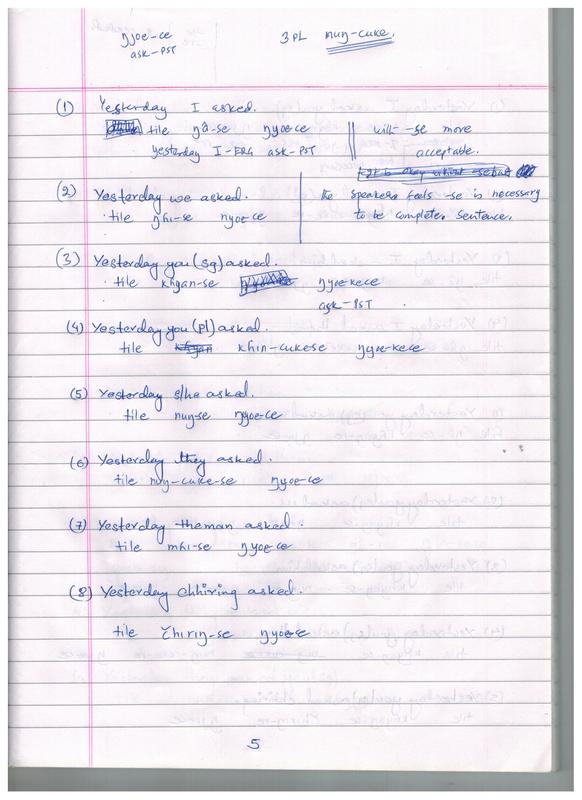 ŋyoe-ce
ask-PST
3PL nuŋ-cuke.
(1) Yesterday I asked.
tile ŋâ-se ŋyoe-ce
yesterday I-ERG ask-PST
with -se more
acceptable.
(2) Yesterday we asked.
tile ŋhi-se ŋyoe-ce
the speakers feels -se is necessary
to be complete sentence.
(3) Yesterday you (sg) asked.
tile khyan-se ŋyoe-kece
ask-PST
(4) Yesterday you (pl) asked.
tile khin-cukese ŋyoe-kece
(5) Yesterday s/he asked.
tile nuŋ-se ŋyoe-ce
(6) Yesterday they asked.
tile nuŋ-cuke-se ŋyoe-ce
(7) Yesterday theman asked.
tile mhi-se ŋyoe-ce
(8) Yesterday chhiring asked.
tile čhiriŋ-se ŋyoe-se
5